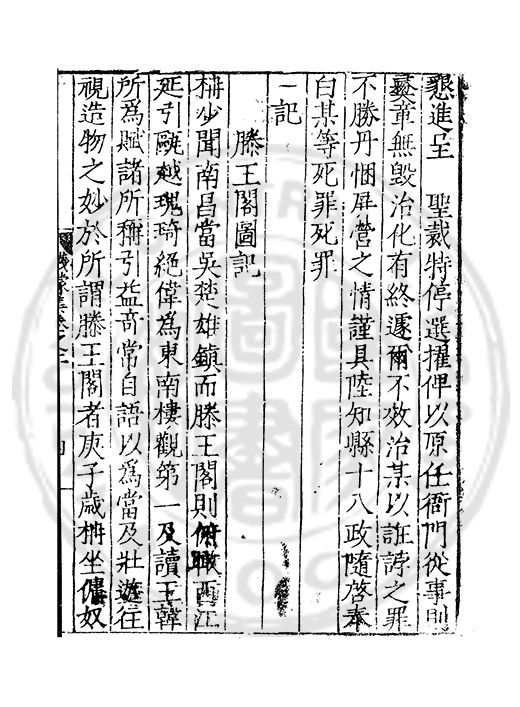 懇進呈　聖裁特停選擢俾以原任衙門從事則
囏童無毀治化有終遽爾不效治某以誑誖之罪
不勝丹悃屏營之情謹具陸知縣十八政隨啓奉
白某等死罪死罪
一記
滕王閣圖記
枏少聞南昌當吳楚雄鎮而滕王閣則俯瞰西江
延引甌越瑰琦絕偉為東南樓觀第一及讀王韓
所為賦諸所稱引益奇常自語以為當及壯遊往
視造物之妙於所謂滕王閣者庚子歲枏坐儓奴